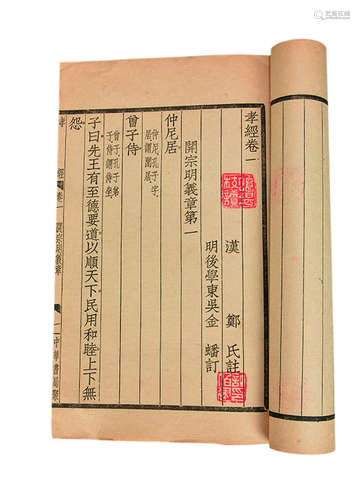 孝經卷一
漢 鄭氏註
明後學東吳金 蟠訂
開宗明義章第一
仲尼居
仲尼孔子字
居謂閒居
曾子侍
曾子孔子弟
子侍謂侍坐
子曰先王有至德要道以順天下民用和睦上下無
怨
孝 經 卷一 開宗明義章 一 中華書局聚